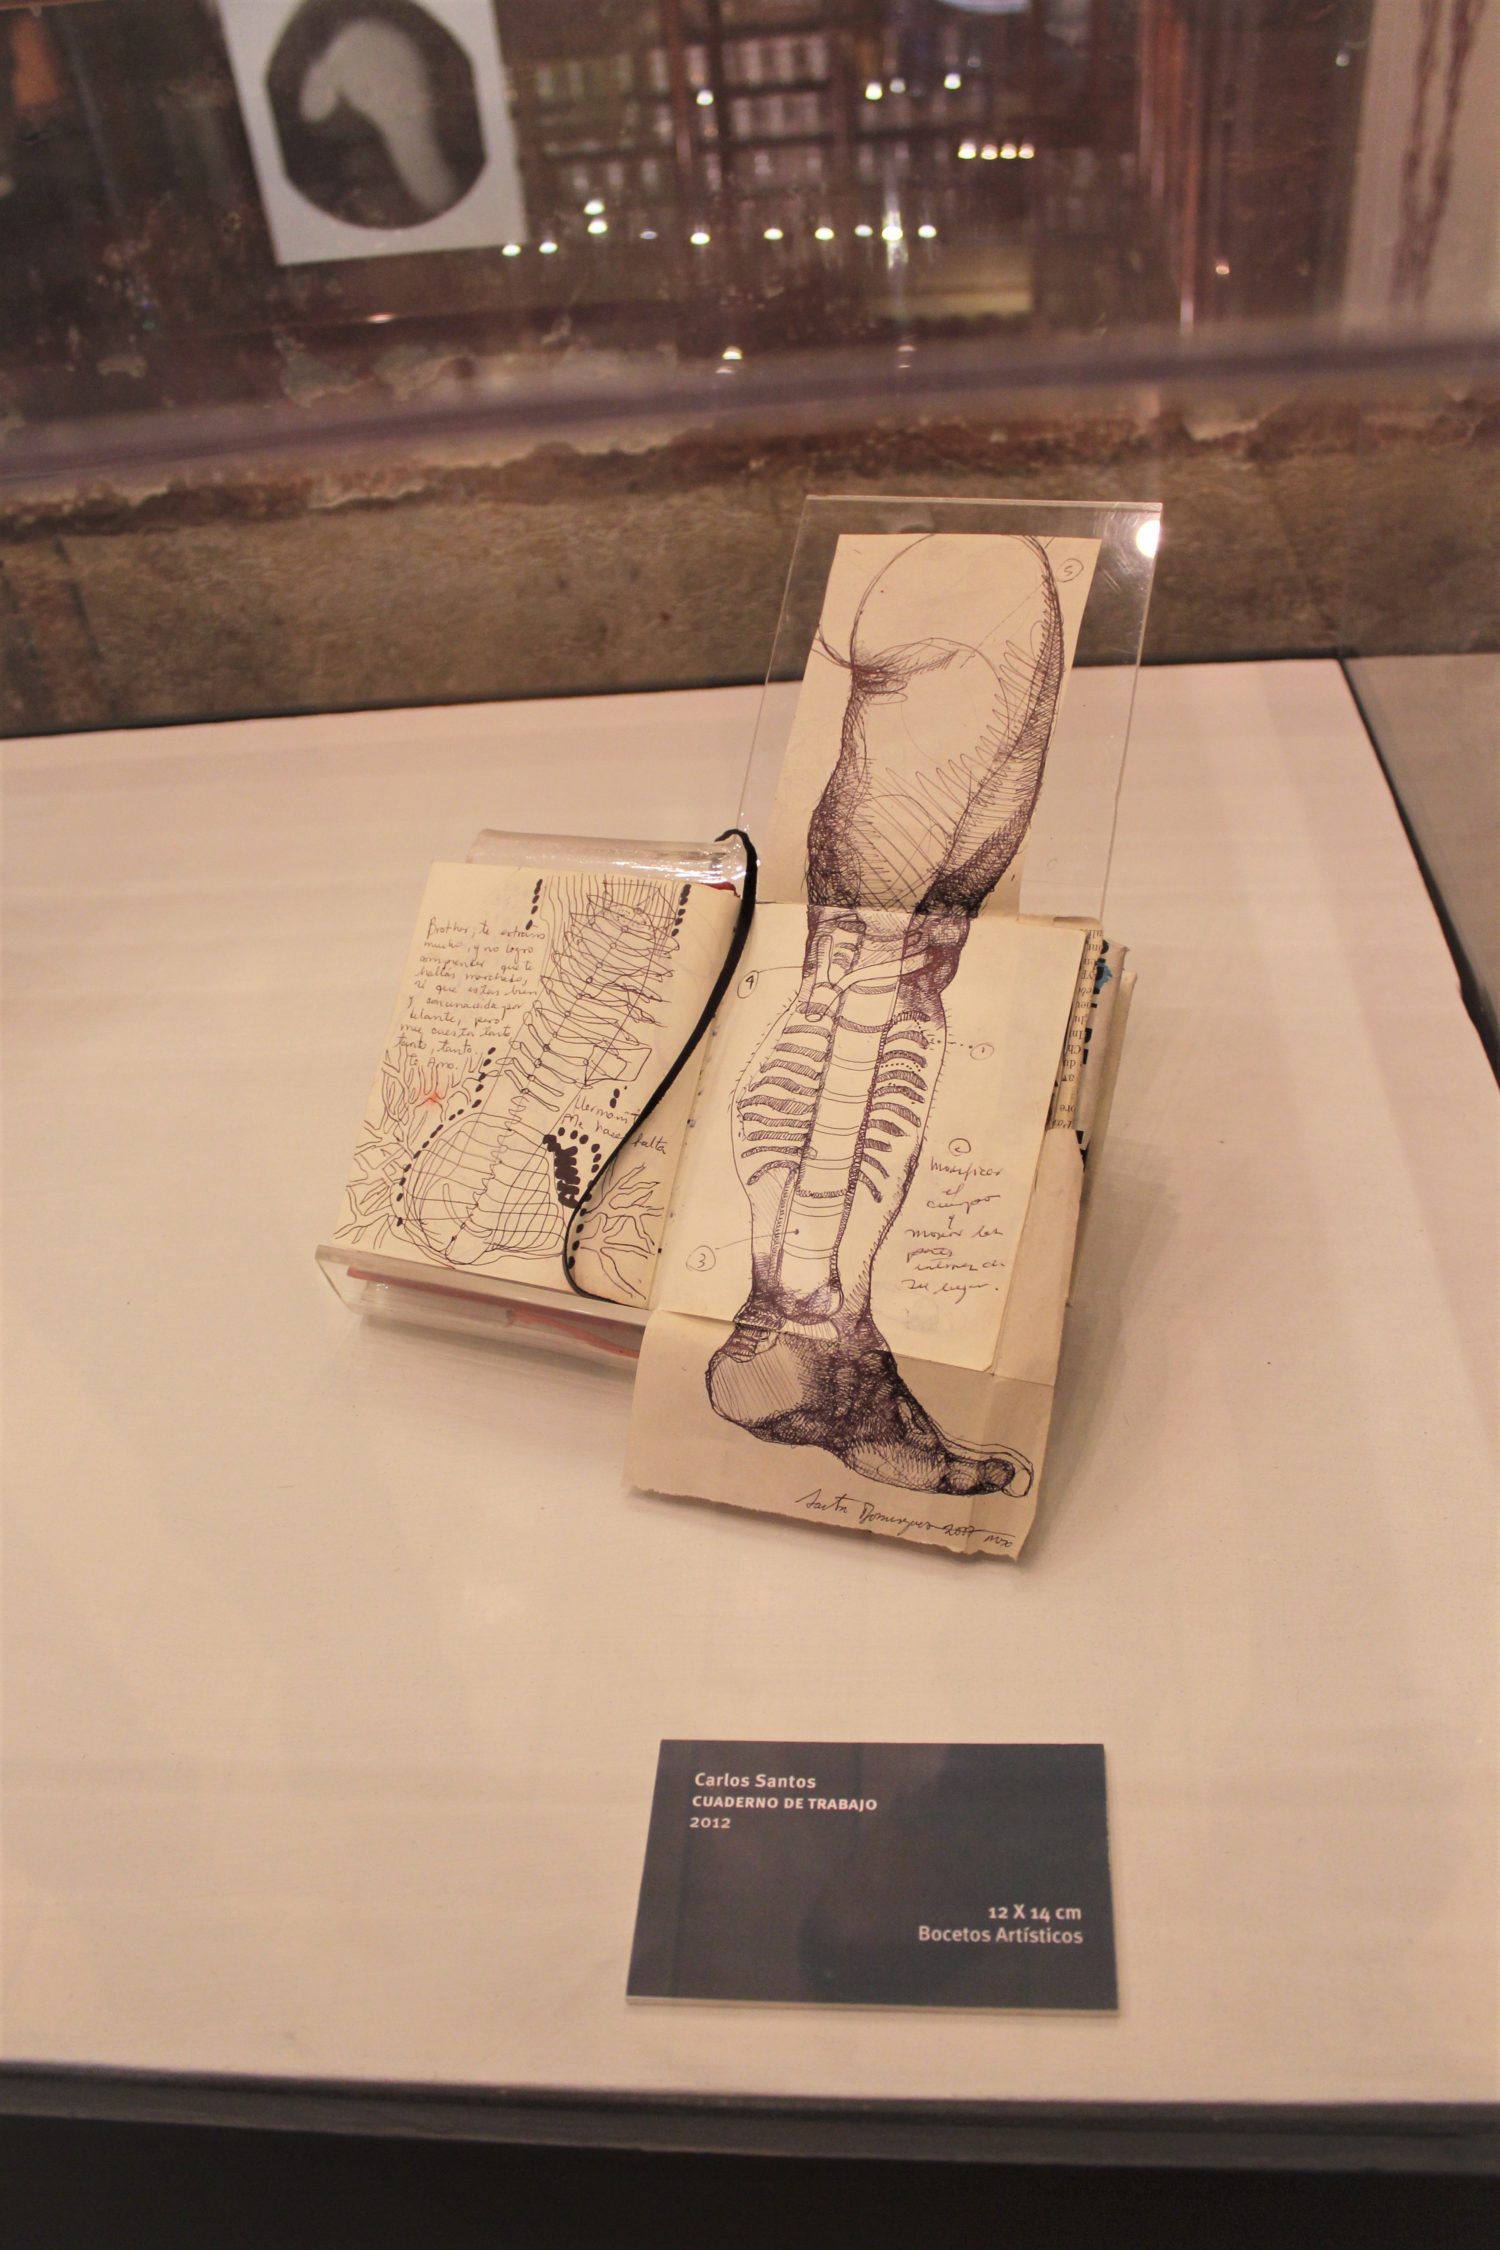 Brother, te extraño
mucho, y no logro
comprender que te
hallas marchado,
sé que estas bien
y
por
delante, pero
me cuesta tanto
tanto, tanto.
te amo.
Hermani
Me hace falta
5
4
1
2
Modificar
el
cuerpo
y
mover las
partes
internas de
su lugar.
3
Dominguez 2007
Carlos Santos
CUADERNO DE TRABAJO
2012
12 X 14 cm
Bocetos Artísticos